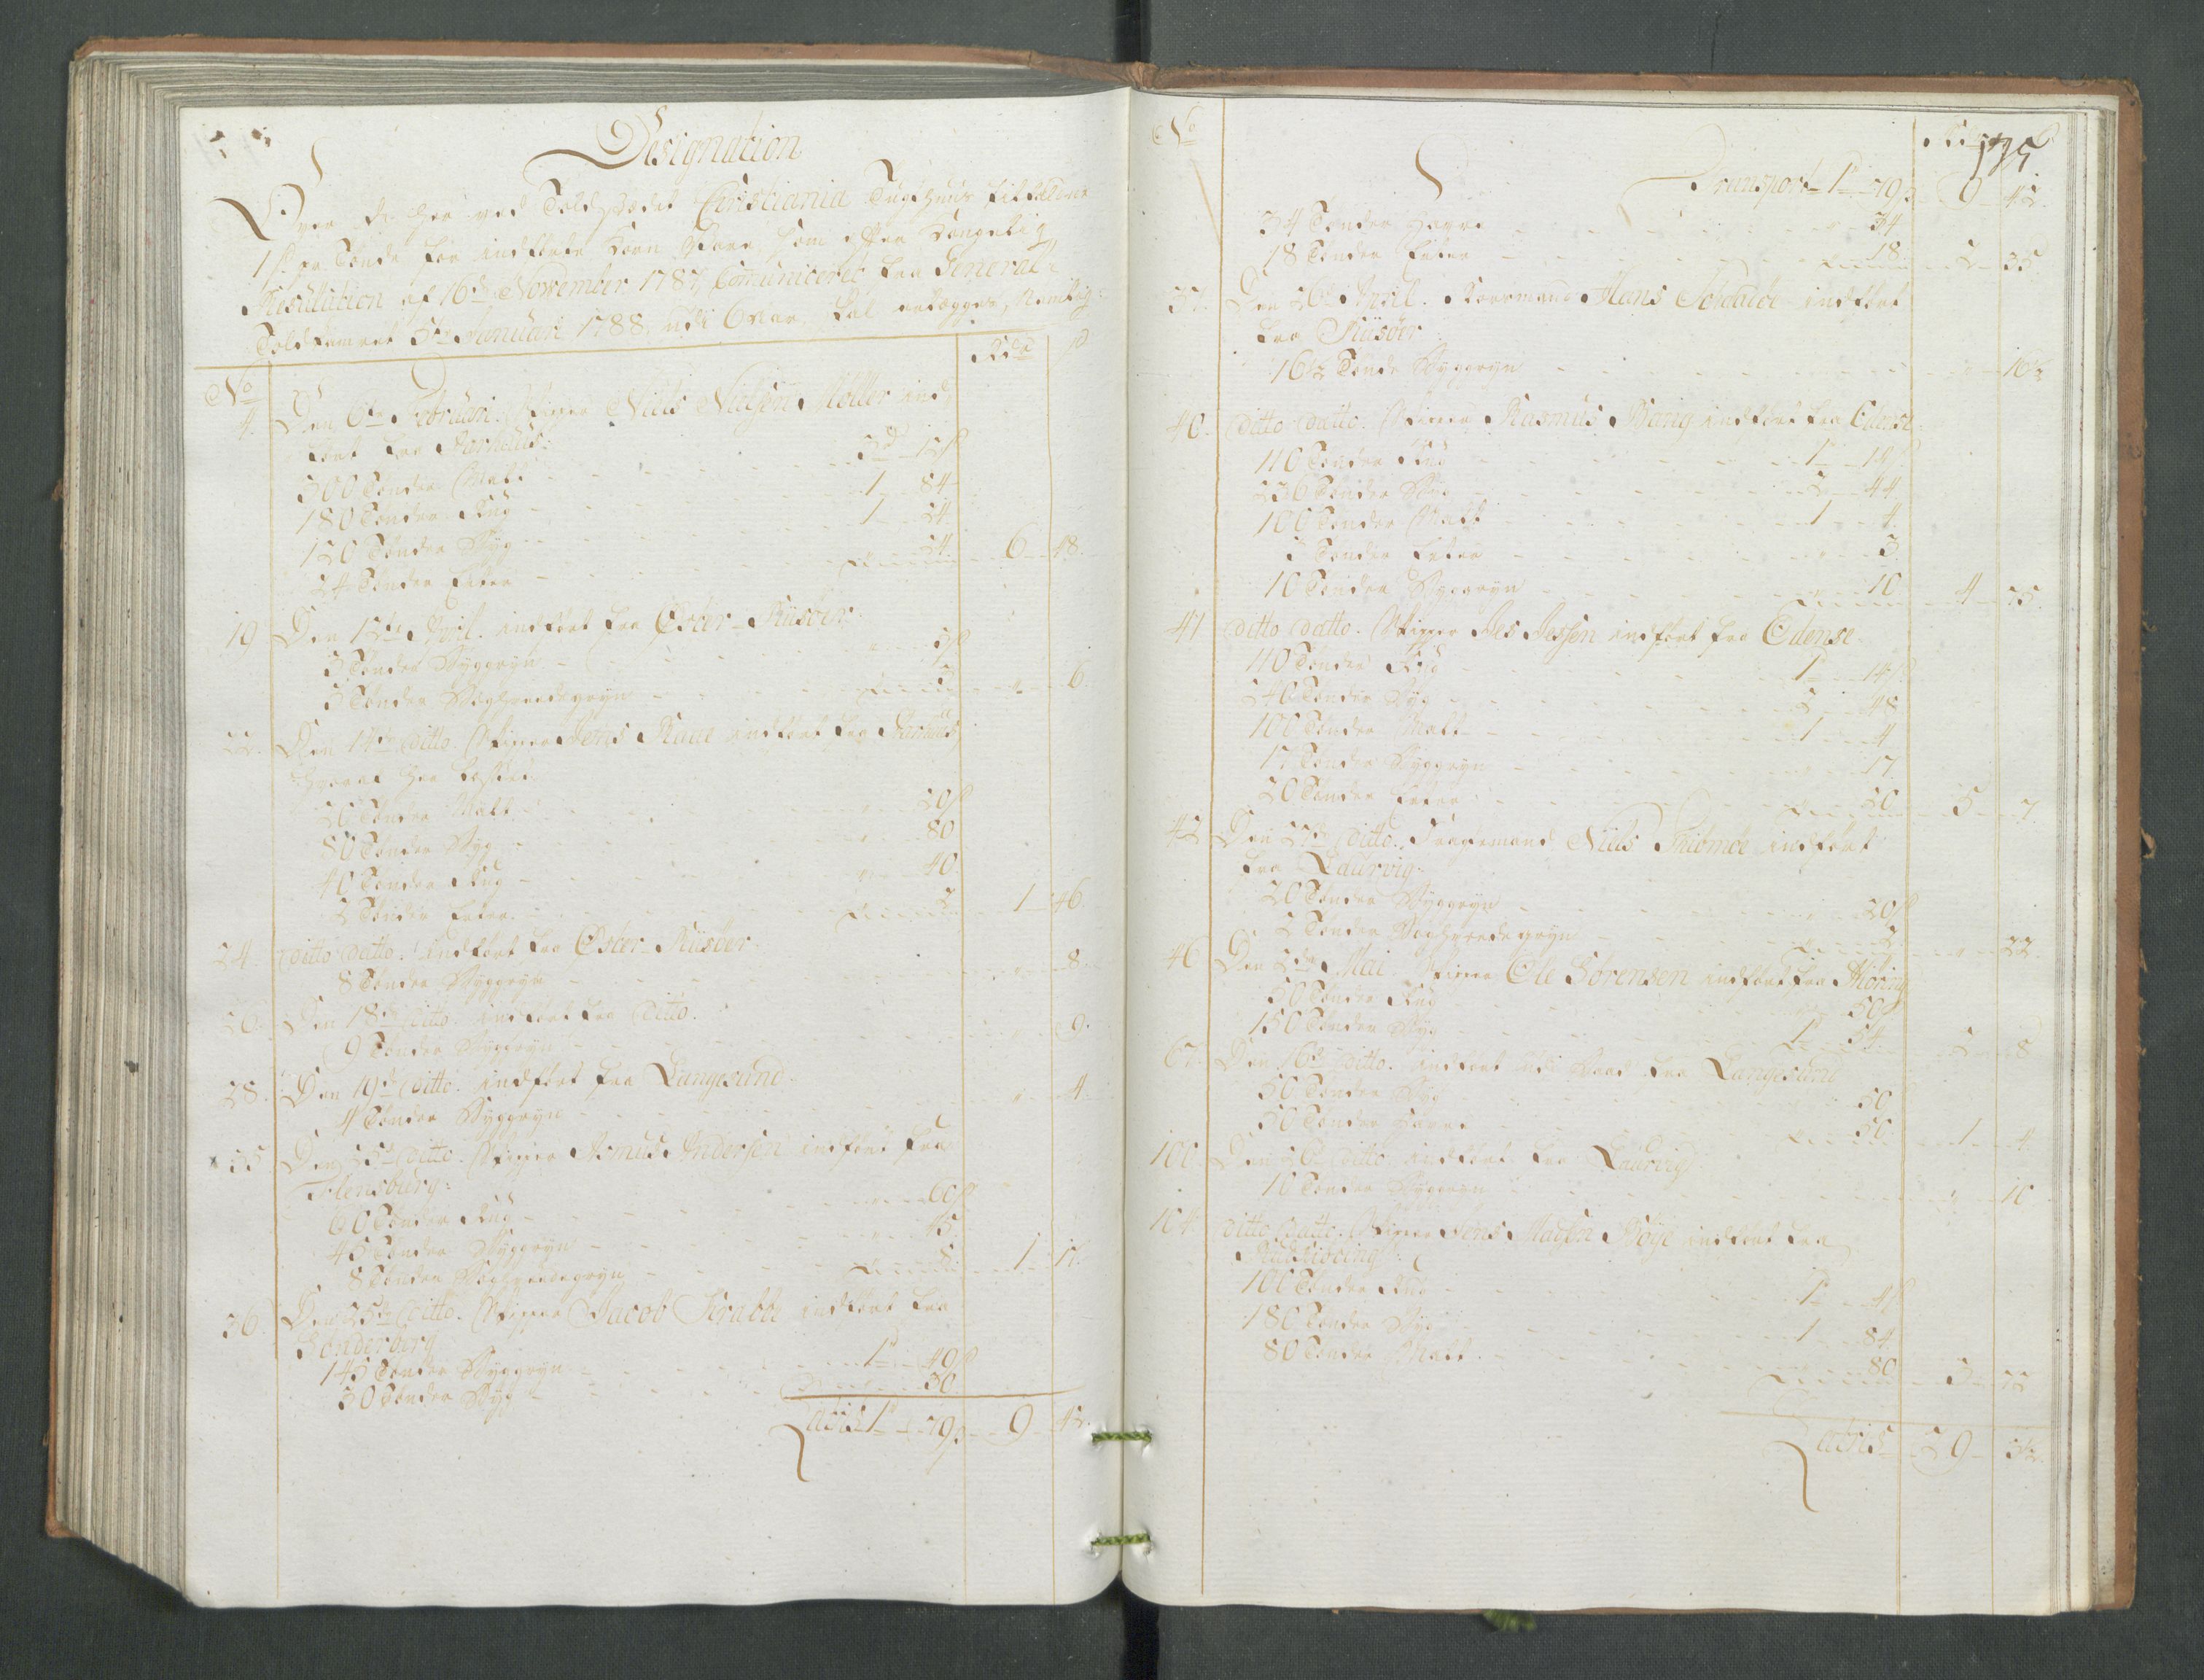 Designation
Over de her ved Toldstædet Christiania Tugthuus tilfaldne
1 s. pr. Tønde for indførte Korn Vare, som efter Kongelig
Resolution af 16de November 1787, Communiceret fra General
Toldkamret 5te Januari 1788. udi 6 Aar skal erlægges, Nemlig:
No Rdr s
4. Den 6te Februari. Skipper Niels Nielsen Møller ind
ført fra Aarhuus:
300 Tønder Malt - 3d 12 s
180 Tønder Rug - 1 - 84
120 Tønder Byg - 1 - 24
24 Tønder Erter - 24 - 6 - 48.
19 Den 12te April. indført fra Øster-Riisøer:
3 Tønder Byggryn - 3 s
3 Tønder Boghvedegryn - 3 - " - 6
22. Den 14de Ditto. Skipper Jens Raae indført fra Aarhuus,
hvoraf her losset
20 Tønder Malt - 20 s
80 Tønder Byg - 80
40 Tønder Rug - 40.
2 Tønder Erter. - 2 - 1 - 46
24. Ditto Datto. indført fra Øster-Riisøer
8 Tønder Byggryn - " - 8.
26. Den 18de Ditto. indført fra Ditto.
9 Tønder Byggryn - " - 9.
28. Den 19de Ditto. indført fra Langesund.
4 Tønder Byggryn - " - 4
35 Den 25de Ditto. Skipper Asmus Andersen indført fra
Flensburg:
60 Tønder Rug - 60 s
45 Tønder Byggryn - 45.
8 Tønder Boghvedegryn - 8. - 1 - 17.
36. Den 25de Ditto. Skipper Jacob Krabbe indført fra
Sønderborg
145 Tønder Byggryn - 1d - 49 s
30 Tønder Byg - 30
Latus 1d - 79 s - 9 - 42.
No 135
Transport 1d - 79 s - 9 - 42.
34 Tønder Havre - 34
18 Tønder Erter - 18 - 2 - 35.
37. Den 26de April. Hans indført
fra Riisøer:
16½ Tønde Byggryn - " - 16½
40. Ditto Datto. Skipper Rasmus Wang indført fra Odense:
110 Tønder Rug - 1d - 14 s
236 Tønder Byg - 2 - 44.
100 Tønder Malt - 1 - 4.
3 Tønder Erter - 3
10 Tønder Byggryn - 10 - 4 - 75.
41 Ditto Datto. Skipper Jes Jessen indført fra Odense
110 Tønder Rug - 1d - 14 s
240 Tønder Byg - 2 - 48
100 Tønder Malt - 1 - 4
17 Tønder Byggryn - 17.
20 Tønder Erter - 20 - 5 - 7.
42 Den 27de Ditto. Niels indført
fra Laurvig.
20 Tønder Byggryn - 20 s
2 Tønder Boghvedegryn - 2. - " - 22.
46 Den 2den Mai Skipper Ole Sørensen indført fra
50 Tønder Rug - 50 s
150 Tønder Byg - 1d 54. - 2 - 8
67. Den 16de Ditto. indført udi Baad fra Langesund
50 Tønder Byg - 50
50 Tønder Havre - 50. - 1 - 4
100. Den 26de Ditto indført fra Laurvig
10 Tønder Byggryn - " - 10
104. Ditto Datto. Skipper Jens Madsen indført fra
Rudkiøbing:
100 Tønder Rug - 1d - 4 s
180 Tønder Byg - 1 - 84.
80 Tønder Malt. - 80 - 3 - 72
Latus - 29 -